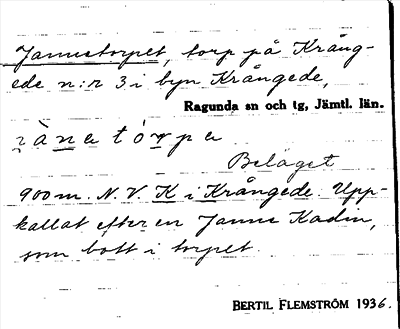 Jannetorpet, torp på Krång-
ede n:r 3 i byn Krångede,
Ragunda sn och tg, Jämtl. län.
Beläget
900 m. N. V. K i Krångede. Upp-
kallat efter en Janne Kadin,
som bott i torpet.
BERTIL FLEMSTRÖM 1936.